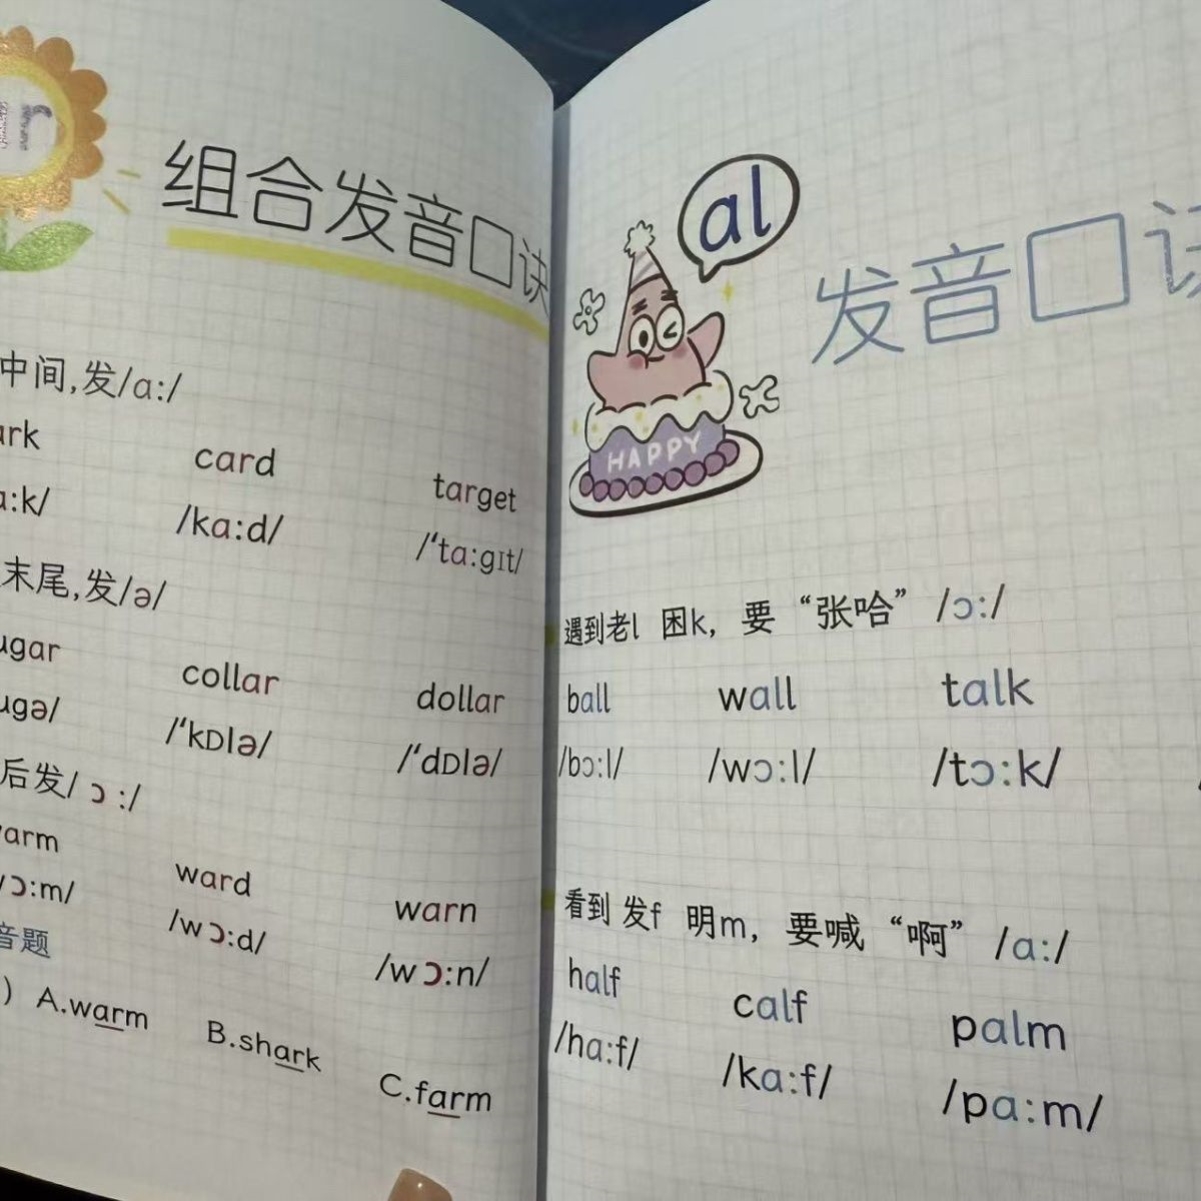 组合发音口诀
中间,发/ɑ:/
card
target
/kɑ:d/
/'tɑ:gɪt/
末尾,发/ə/
collar
dollar
/'kɒlə/
/'dɒlə/
后发/ɔ:/
ward
warn
/wɔ:d/
/wɔ:n/
音题
) A.warm B.shark C.farm
al
发音口诀
HAPPY
遇到老l 困k, 要 “张哈” /ɔ:/
ball wall talk
/bɔ:l/ /wɔ:l/ /tɔ:k/
看到 发f 明m, 要喊 “啊” /ɑ:/
half calf palm
/hɑ:f/ /kɑ:f/ /pɑ:m/